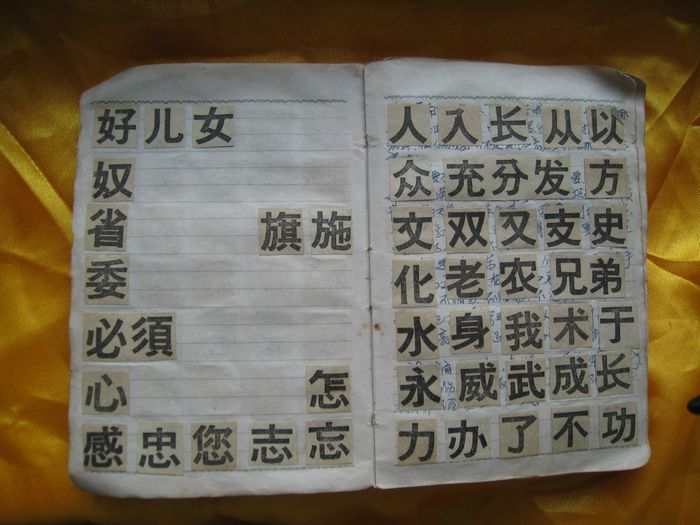 好儿女
奴
省 旗施
委
必須
心 怎
感忠您志忘
人入长从以
众充分发方
文双又支史
化老农兄弟
水身我术于
永威武成长
力办了不功